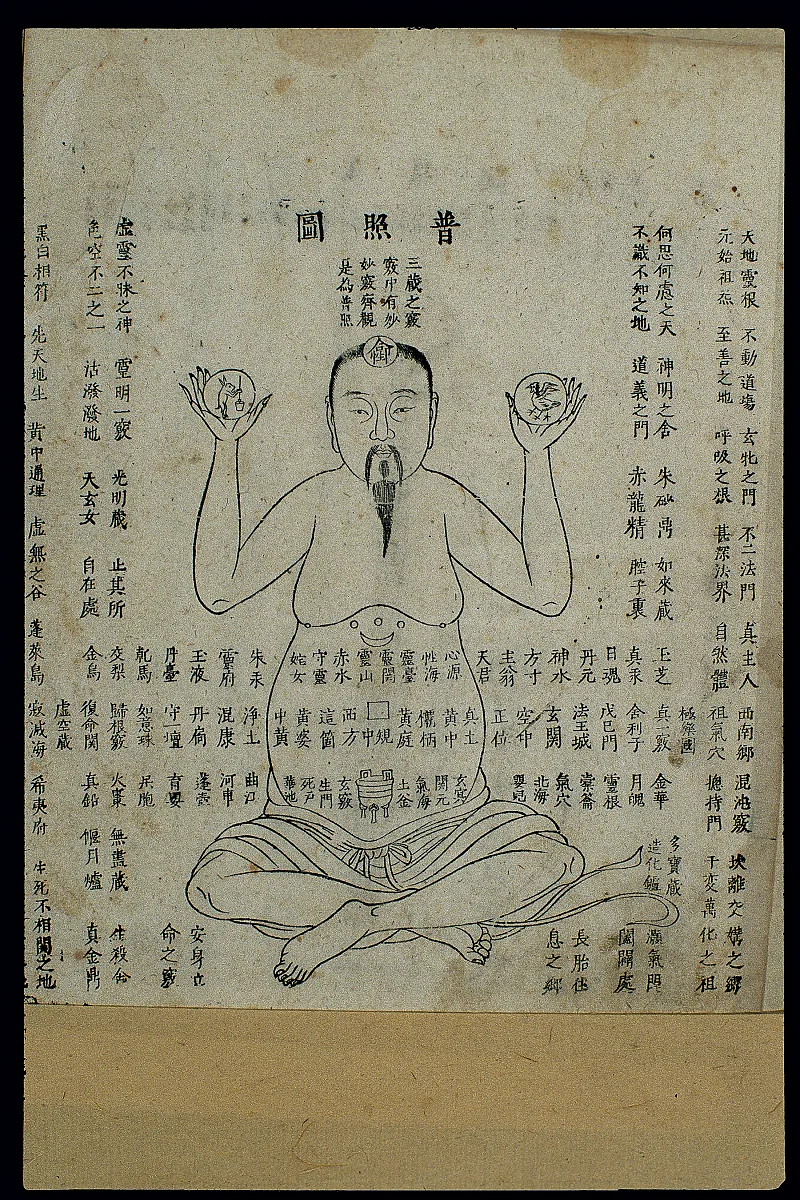 普照圖
三蔵之竅
竅中有妙
妙竅齊觀
是為普照
天地靈根 不動道場 玄牝之門 不二法門 真主人 西南鄉 混沌竅 坎離交媾之鄉
元始祖炁 至善之地 呼吸之根 甚深法界 自然體 祖氣穴 總持門 千變萬化之祖
極樂國
何思何慮之天 神明之舍 朱砂鼎 如來蔵 玉芝 真一竅 金華
不識不知之地 道義之門 赤龍精 腔子裏 真汞 舍利子 月魄
多寶蔵
造化鑪
闔闢處
日魂 戊己門 靈根
丹元 法王城 崇崙 長胎住
神水 玄關 氣穴 息之鄉
方寸 空中 北海
主翁 正位
天君
心源 真土 玄冥
性海 黃中 關元
靈臺 欛柄 氣海
靈關 黃庭 土金
靈山 規中
赤水 西方 玄竅
守靈 這箇 生門
姹女 黃婆 死戶
中黃 華池
朱汞 淨土 曲江
靈府 混康 河車
玉液 丹扃 蓬壺 安身立
丹臺 守一壇 育嬰 命之竅
乾馬 如意珠
虛靈不昧之神 靈明一竅 光明蔵 止其所 交梨 歸根竅 火棗 無盡蔵 生殺舍
色空不二之一 活潑潑地 天玄女 自在處 金烏 復命關 真鉛 偃月爐 真金鼎
虛空蔵
黑白相符 先天地生 黃中通理 虛無之谷 蓬萊島 寂滅海 希夷府 生死不相關之地